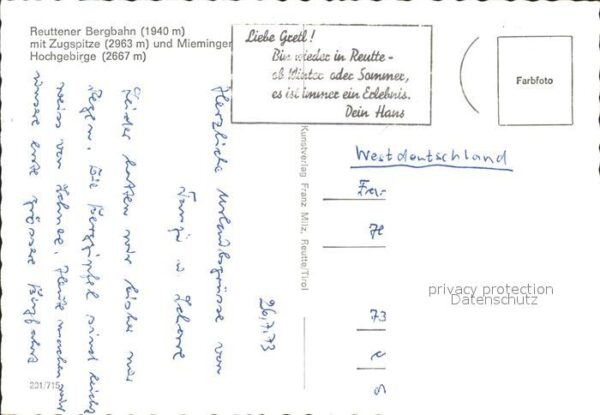 Reuttener Bergbahn (1940 m)
mit Zugspitze (2963 m) und Mieminger
Hochgebirge (2667 m)
Liebe Gretl!
Bin wieder in Reutte -
ob Winter oder Sommer,
es ist immer ein Erlebnis.
Dein Hans
Farbfoto
26.7.73
Herzliche Urlaubsgrüsse von
Leider hatten wir bisher nur
Regen. Die Berggipfel sind leicht
weiss von Schnee. Heute machen wir
unsere erste grössere Bergfahrt
Kunstverlag Franz Milz, Reutte/Tirol
Westdeutschland
73
privacy protection
Datenschutz
201/715